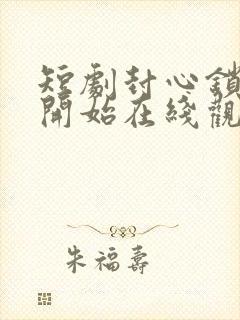 短劇封心鎖
開始在綫觀
朱福壽